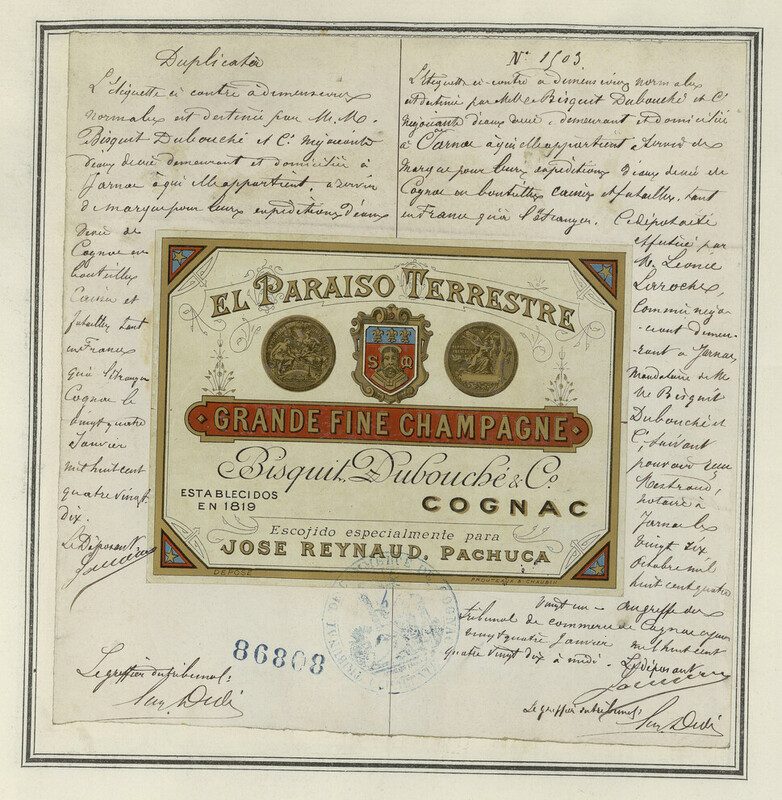 Duplicata
L'étiquette ci contre à dimensions
normales est destinée par M.M.
Bisquit Dubouché et Cie Négociants
d'eaux de vie demeurant et domiciliés à
Jarnac à qui elle appartient, à servir
de marque pour leurs expéditions d'eaux
devie de
Cognac en
bouteilles
Caisses et
futailles tant
en France
qu'à l'étranger
Cognac le
vingt quatre
Janvier
mil huit cent
quatre vingt
dix.
Le Déposant
Le greffier du tribunal:
No 1503.
L'étiquette ci-contre à dimensions normales
est destinée par MM. Bisquit Dubouché et Cie
Négociants d'eaux devie, demeurant et domiciliés
à Jarnac à qui elle appartient à servir de
Marque pour leurs expéditions d'eaux devie de
Cognac en bouteilles caisses et futailles, tant
en France qu'à l'étranger. Ce dépôt a été
effectué par
M. Léonce
Larroche,
Commis négo-
-ciant demeu-
-rant à Jarnac
Mandataire de M
M. Bisquit
Dubouché et
Cie, suivant
pouvoir reçu
Mestraud,
notaire à
Jarnac le
vingt six
Octobre mil
huit cent quatre
vingt un - au greffe du
tribunal de commerce de Cognac ce jour
vingt quatre Janvier mil huit cent
quatre vingt dix à midi. Le Déposant
Le greffier du tribunal:
EL PARAISO TERRESTRE
S M
GRANDE FINE CHAMPAGNE
Bisquit, Dubouché & Co
ESTABLECIDOS
EN 1819
COGNAC
Escojido especialmente para
JOSE REYNAUD, PACHUCA
DÉPOSÉ
PROUTEAUX & CHAUBIN
TRIBUNAL DE COMMERCE DE COGNAC
86808